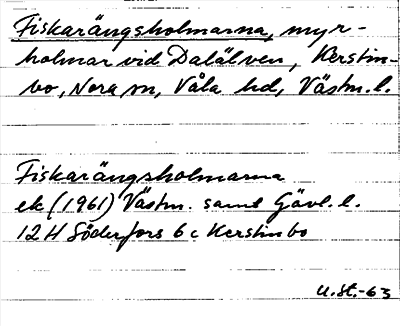 Fiskarängsholmarna, myr-
holmar vid Dalälven, Kerstin-
bo, Nora sn, Våla hd, Västm. l.
Fiskarängsholmarna
ek (1961) Västm. samt Gävl. l.
12 H Söderfors 6 c Kerstinbo
U.St.-63